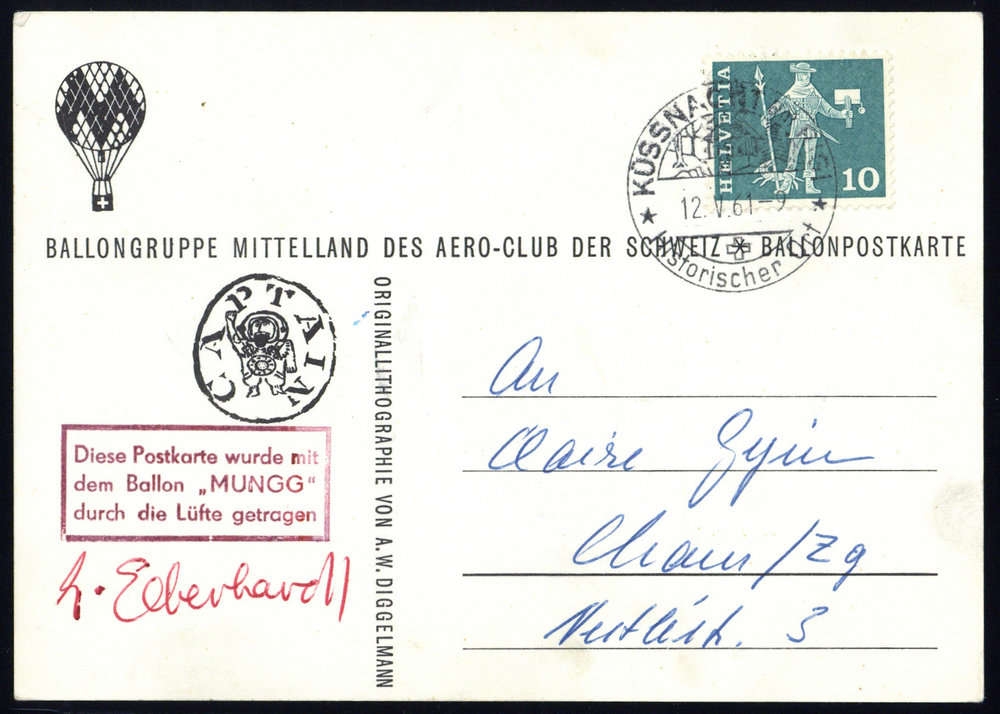 HELVETIA
10
KÜSSNACHT
12.V.61-9
Historischer Ort
BALLONGRUPPE MITTELLAND DES AERO-CLUB DER SCHWEIZ BALLONPOSTKARTE
CAPTAIN
Diese Postkarte wurde mit
dem Ballon „MUNGG"
durch die Lüfte getragen
Eberhardt
ORIGINALLITHOGRAPHIE VON A.W. DIGGELMANN
An
Claire Gysin
Cham/Zg
3